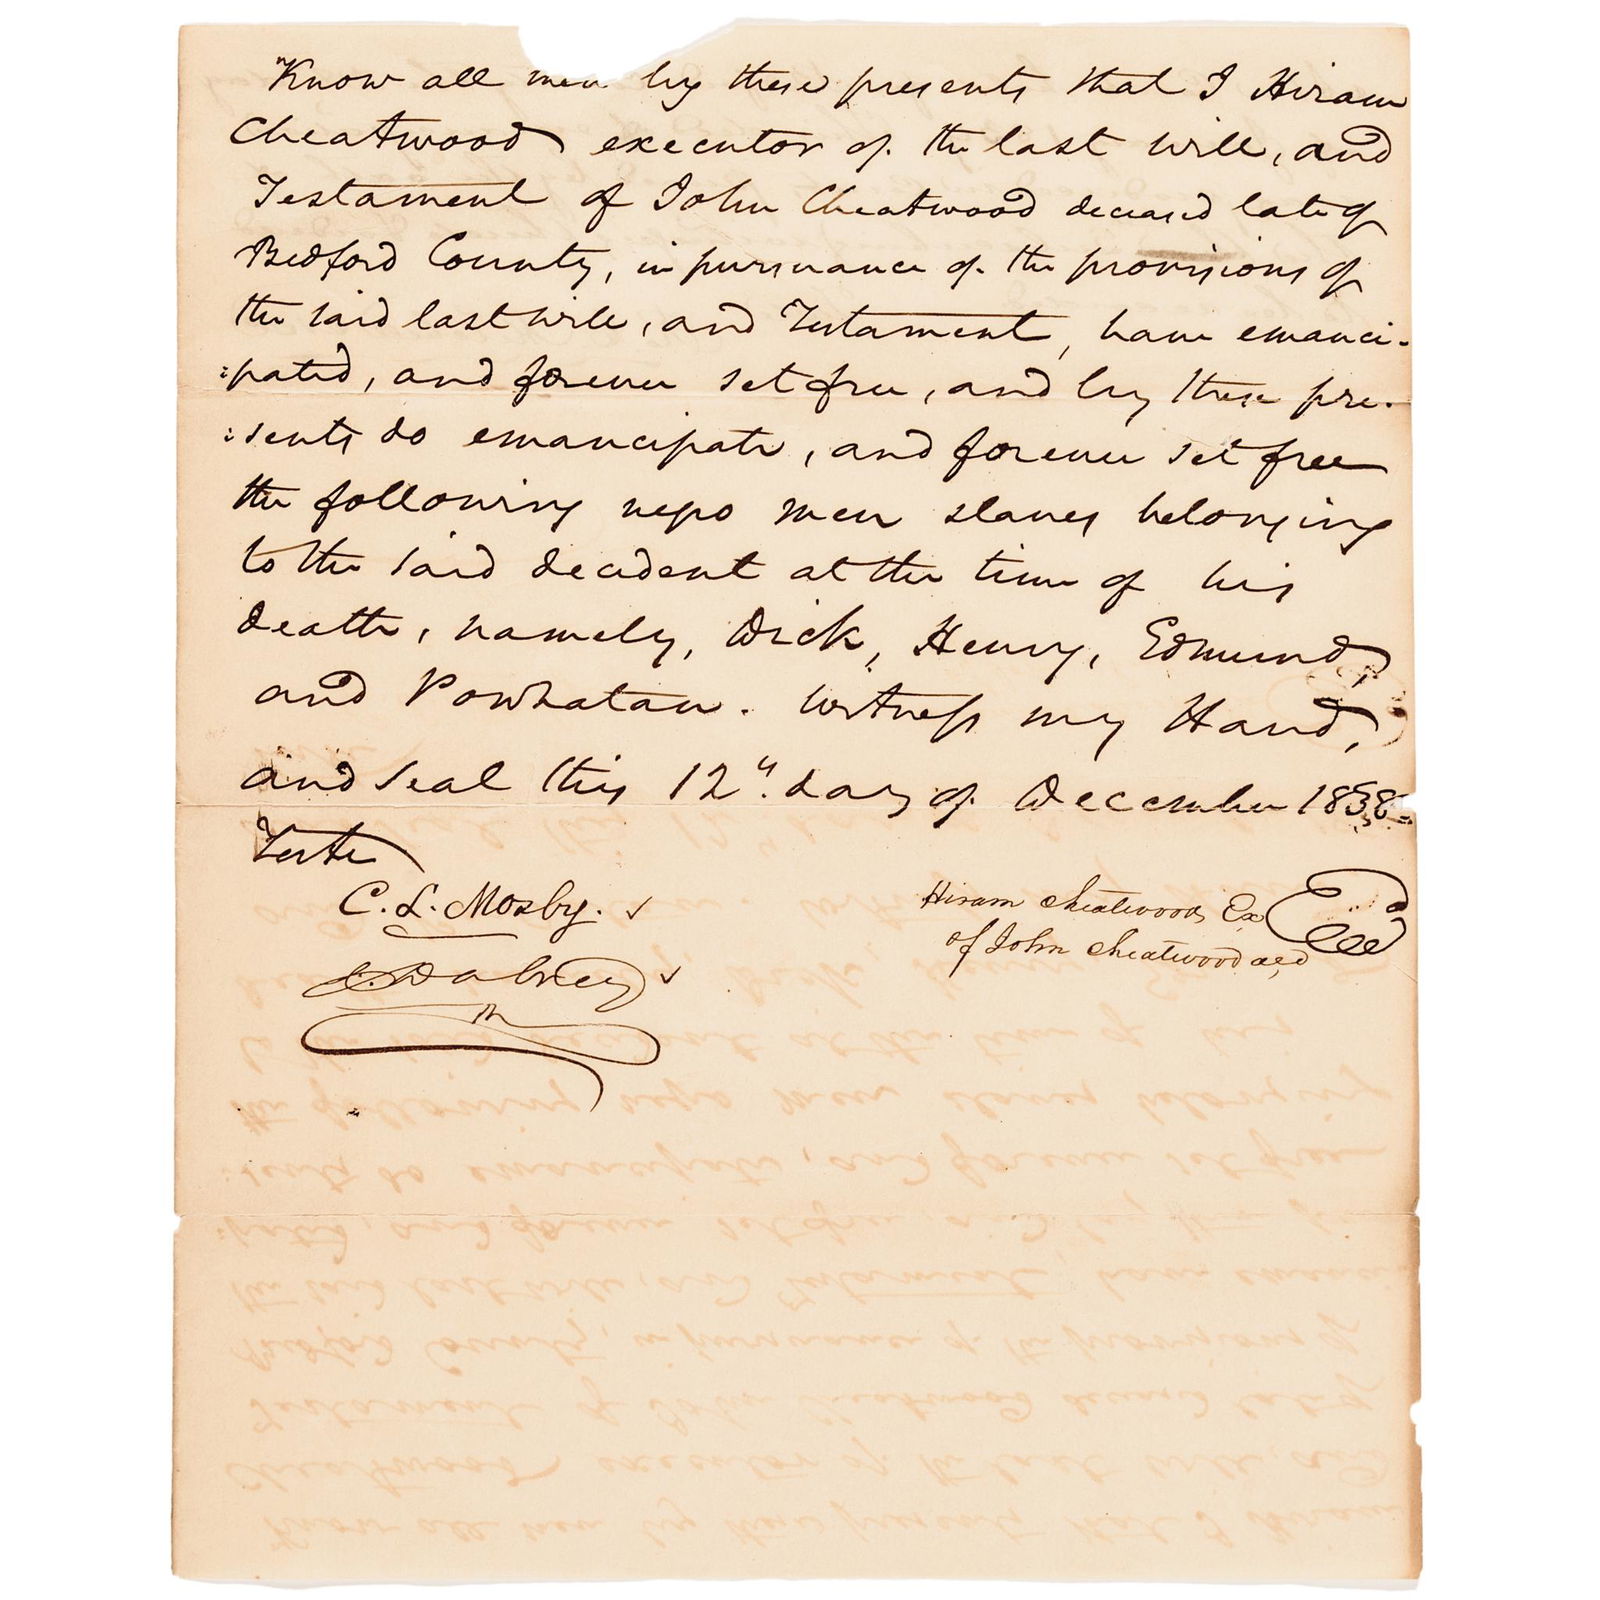 Know all men by these presents that I Hiram
Cheatwood executor of the last will, and
Testament of John Cheatwood deceased late of
Bedford County, in pursuance of the provisions of
the said last will, and Testament, have emanci-
:pated, and forever set free, and by these pre-
:sents do emancipate, and forever set free
the following negro men slaves belonging
to the said decedent at the time of his
death, namely, Dick, Henry, Edmund,
and Powhatan. Witness my Hand,
and seal this 12". day of December 1838-
Teste
C. L. Mosby. ✓
Dabney ✓
Hiram Cheatwood Ex
of John Cheatwood decd